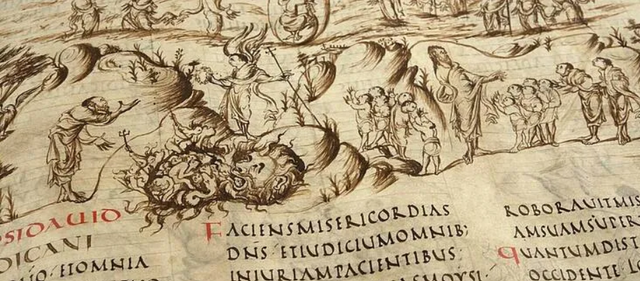 SIDAUID
DICANI
ETOMNIA
FACIENSMISERICORDIAS
DNS·ETIUDICIUMOMNIB;
INIURIAMPATIENTIBUS·
MOYSI·
ROBORAUITMIS
AMSUAMSUPER
QUANTUMDIST
OCCIDENTE